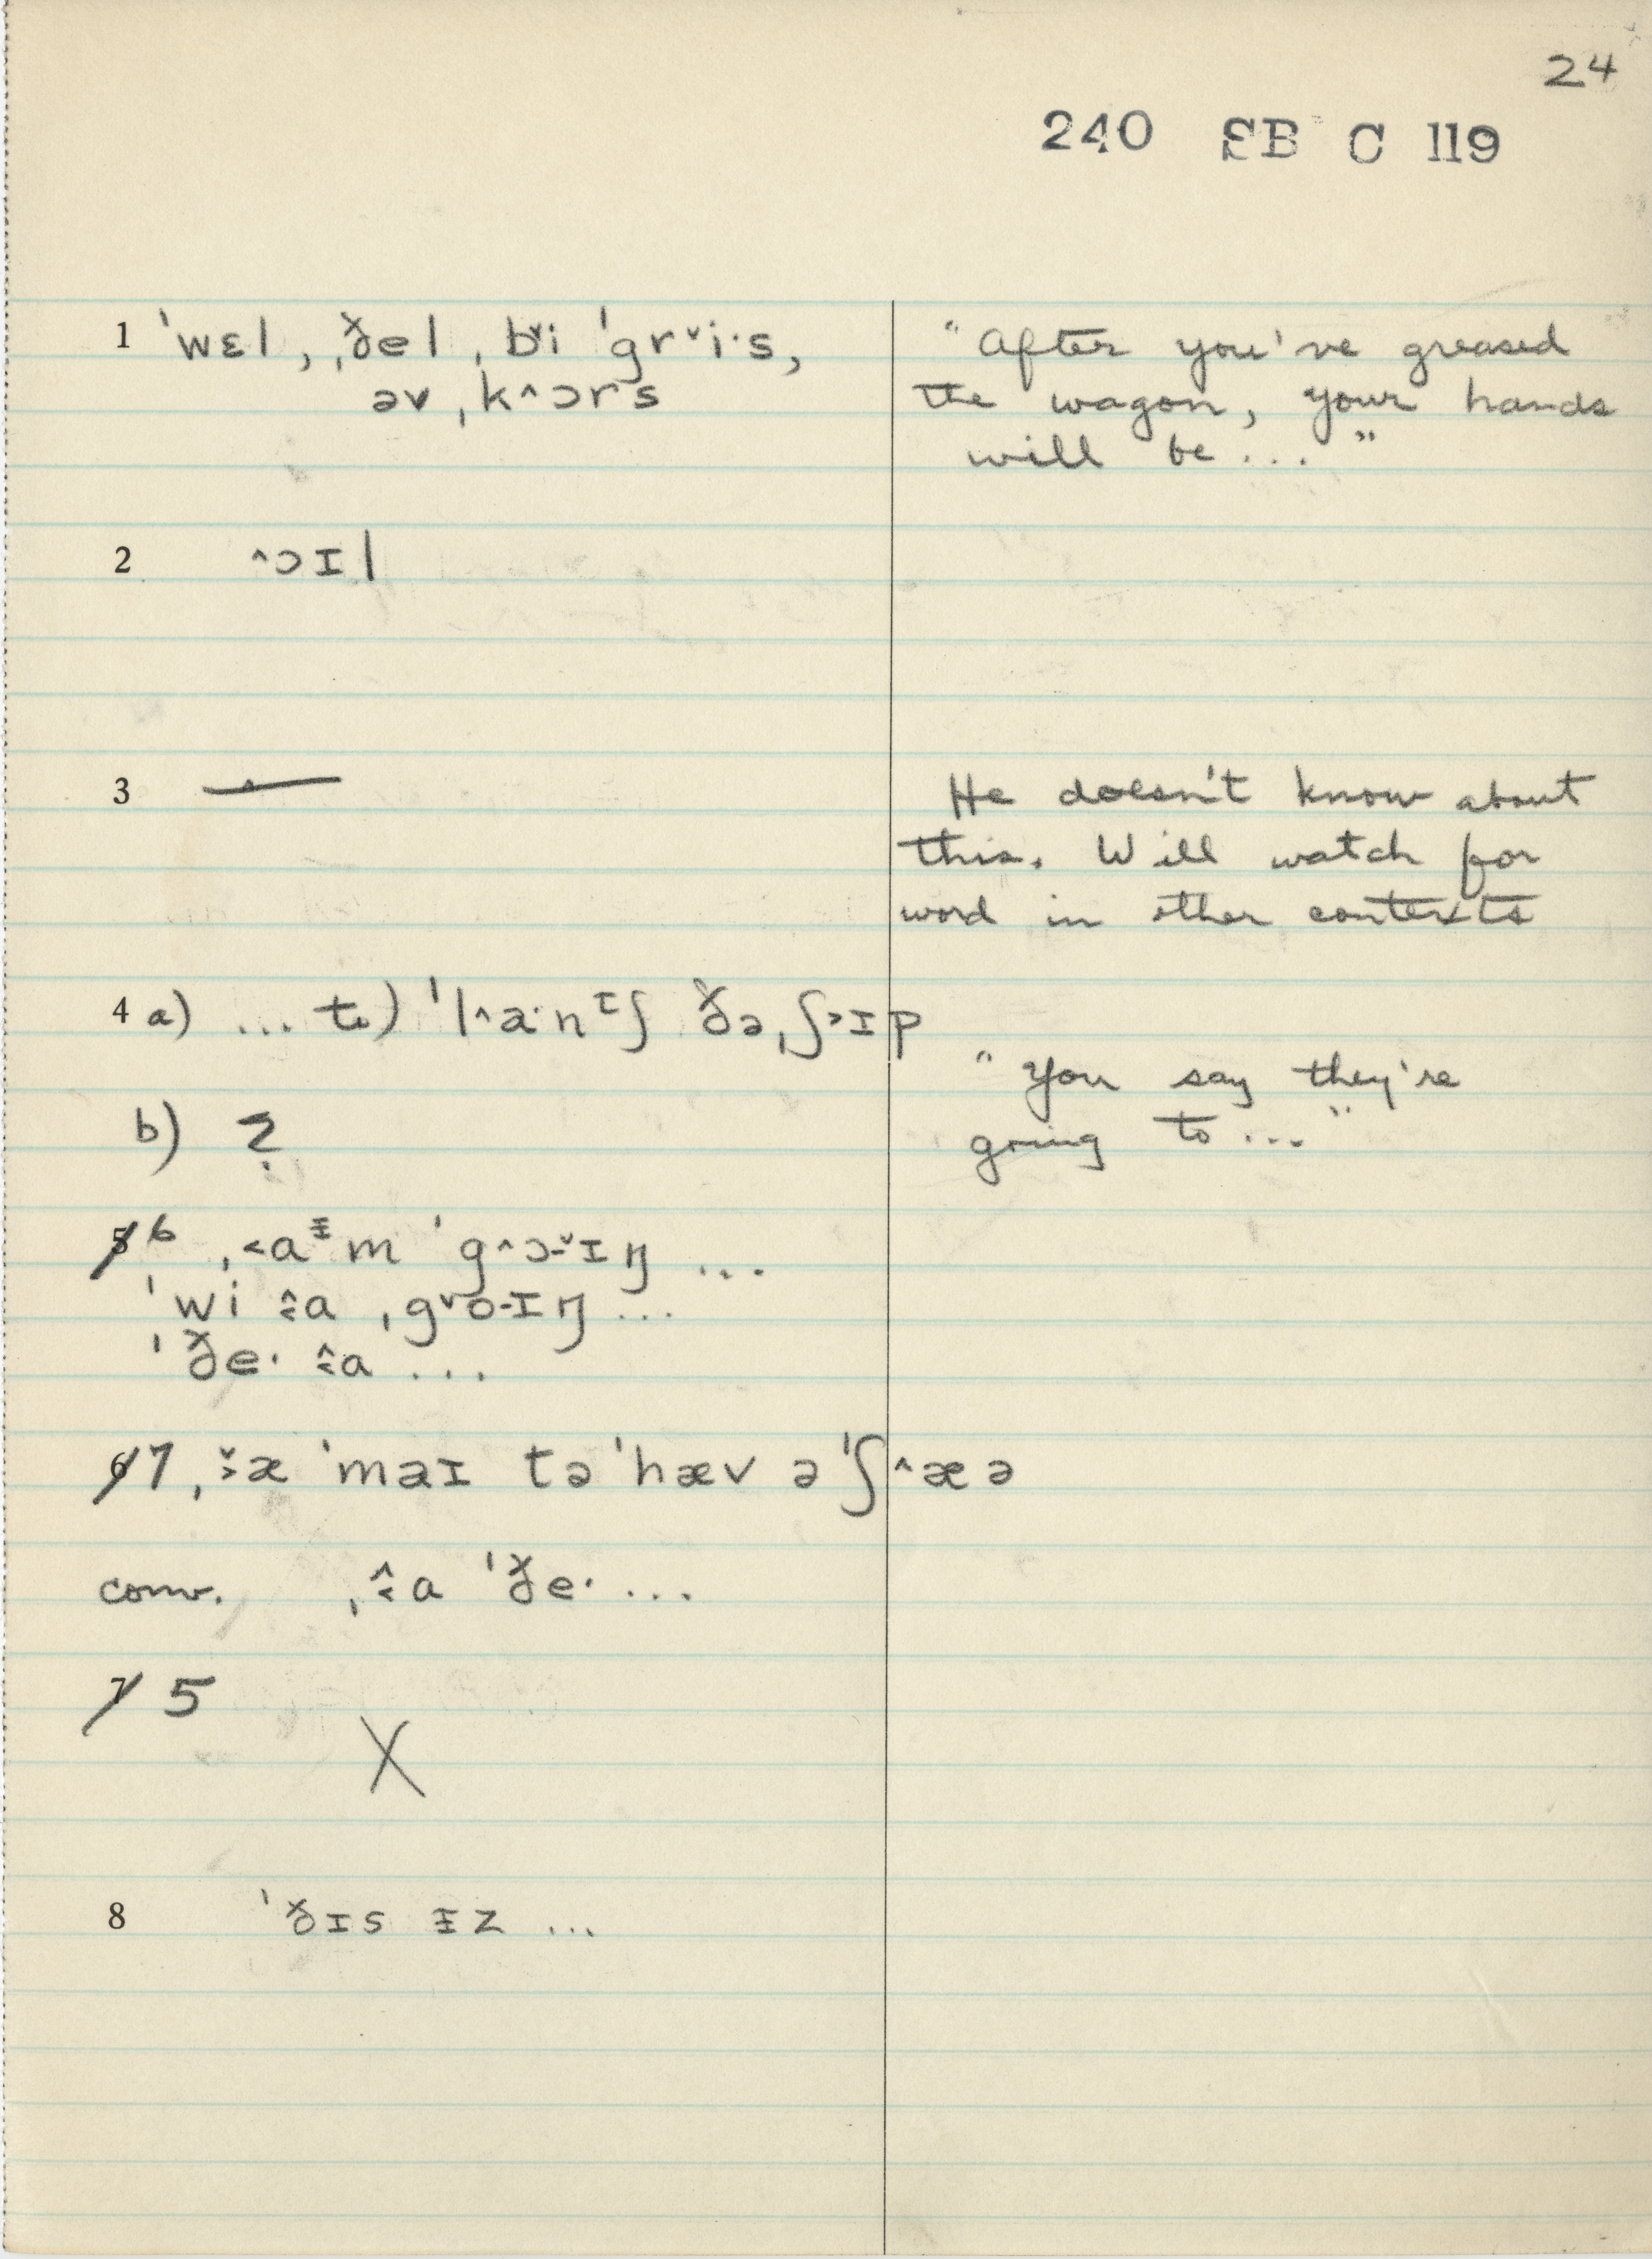 24
240 SB C 119
1 ˈwɛl, ˌðel ˌbˇi ˈgrˇi·s,
əv ˌk^ɔrs
"After you've greased
the wagon, your hands
will be ..."
2 ^ɔɪl
3 —
He doesn't know about
this. Will watch for
word in other contexts
4 a) ... to) ˈl^a·nᶦʃ ðə ˌʃ>ɪp
"You say they're
going to ..."
b) ?
6 ˌ<aᶧm ˈg^ɔ-ˇɪŋ ...
ˈwi a ˌgˇo-ɪŋ ...
ˈðe· a ...
7 ˌæ ˈmaɪ tə ˈhæv ə ˈʃ^æə
conv. ˌa ˈðe· ...
5
X
8 ˈðɪs ᵻz ...